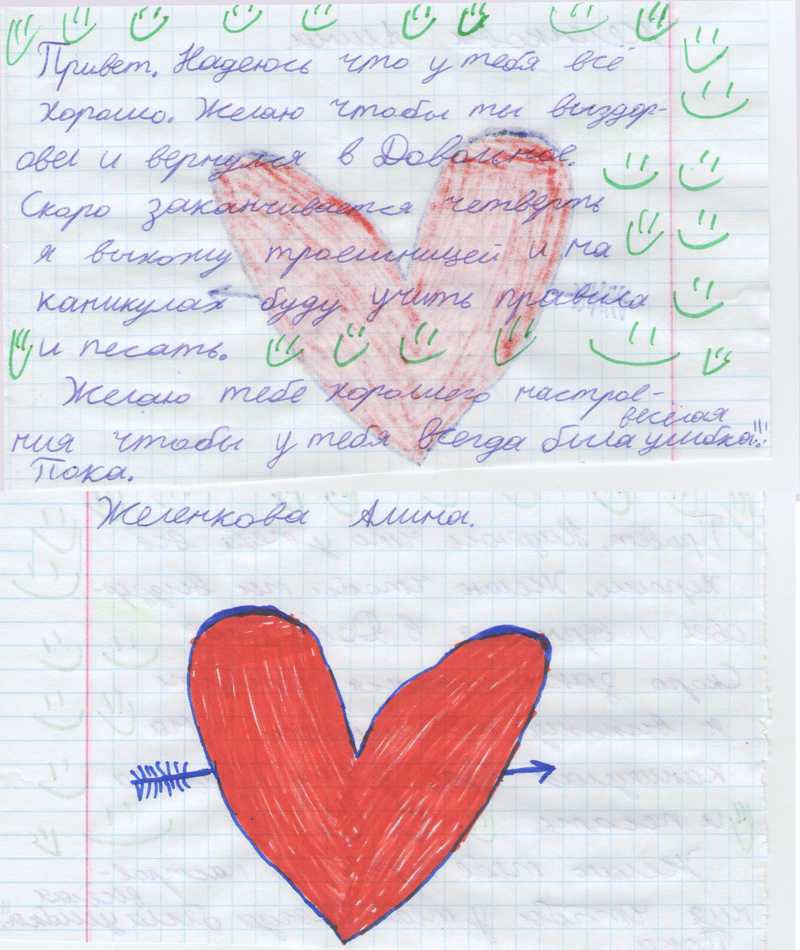 Привет. Надеюсь что у тебя всё
хорошо. Желаю чтобы ты выздор-
овел и вернулся в Довольное.
Скоро заканчивается четверть
я выхожу троешницей и на
каникулах буду учить правила
и песать.
Желаю тебе хорошего настрое-
ния чтобы у тебя всегда была весёлая улыбка!!!
Пока.
Желенкова Алина.